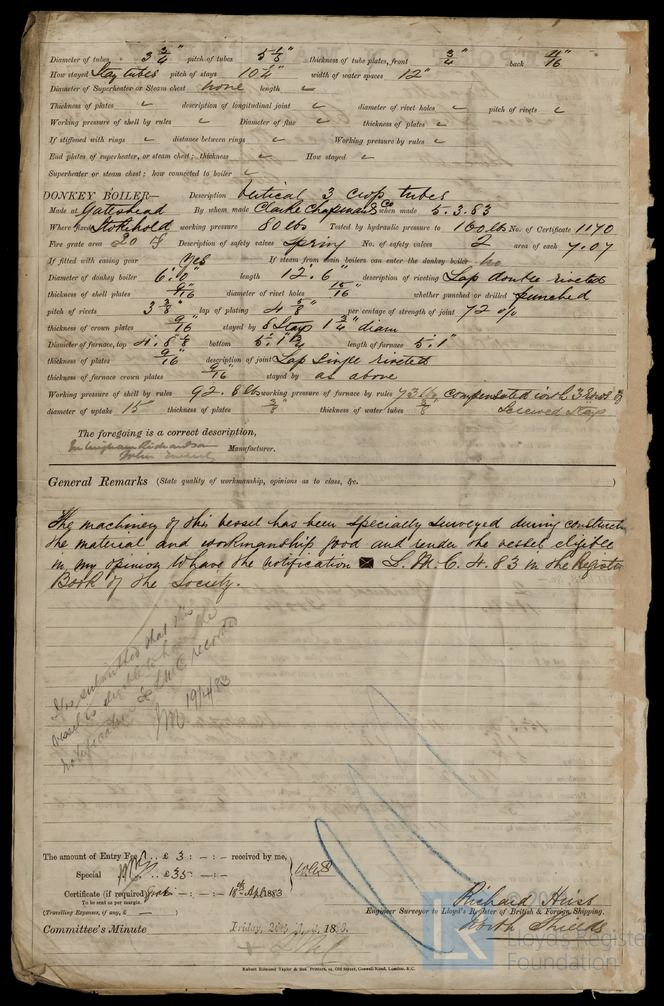 Diameter of tubes 3 3/4" pitch of tubes 5 1/8" thickness of tube plates, front 3/4" back 11/16"
How stayed Stay tubes pitch of stays 10 1/4" width of water spaces 12"
Diameter of Superheater or Steam chest none length ✓
Thickness of plates ✓ description of longitudinal joint ✓ diameter of rivet holes ✓ pitch of rivets ✓
Working pressure of shell by rules ✓ Diameter of flue ✓ thickness of plates ✓
If stiffened with rings ✓ distance between rings ✓ Working pressure by rules ✓
End plates of superheater, or steam chest; thickness ✓ How stayed ✓
Superheater or steam chest; how connected to boiler ✓
DONKEY BOILER— Description Vertical 3 cross tubes
Made at Gateshead By whom made Clarke Chapman & Co when made 5.3.83
Where fixed Stokehold working pressure 80 lbs Tested by hydraulic pressure to 160 lbs No. of Certificate 1170
Fire grate area 20 Description of safety valves Spring No. of safety valves 2 area of each 7.07
If fitted with easing gear yes If steam from main boilers can enter the donkey boiler no
Diameter of donkey boiler 6'.0" length 12'.6" description of riveting Lap double riveted
thickness of shell plates 9/16 diameter of rivet holes 15/16 whether punched or drilled punched
pitch of rivets 3 3/8" lap of plating 4 5/8" per centage of strength of joint 72 %
thickness of crown plates 9/16 stayed by 8 Stays 1 3/4" diam
Diameter of furnace, top 4.8 bottom 5'.1 length of furnace 5'.1"
thickness of plates 9/16 description of joint Lap single riveted
thickness of furnace crown plates 9/16 stayed by as above
Working pressure of shell by rules 92.8 lbs working pressure of furnace by rules 73 lbs compensated with 3 rows of
diameter of uptake 15" thickness of plates 3/8" thickness of water tubes 3/8" Screwed Stays
The foregoing is a correct description,
Manufacturer.
General Remarks (State quality of workmanship, opinions as to class, &c.
The machinery of this vessel has been specially surveyed during construct
the material and workmanship good and render the vessel eligible
in my opinion to have the notification ✠ L.M.C. 4.83 in the Register
Book of the Society.
It is submitted that this
vessel is eligible to have the
notification L.M.C recorded
JM 19/4/83
The amount of Entry Fee .. £ 3 : — : — received by me,
Special .. £ 35 : — : —
Certificate (if required) 18th Apl 1883
To be sent as per margin.
(Travelling Expenses, if any, £ — )
Richard Hirst
Engineer Surveyor to Lloyd's Register of British & Foreign Shipping.
North Shields
Committee's Minute Friday, 20th April 1883.
Robert Edmund Taylor & Son, Printers, 19, Old Street, Goswell Road, London, E.C.
LR
Lloyd's Register
Foundation